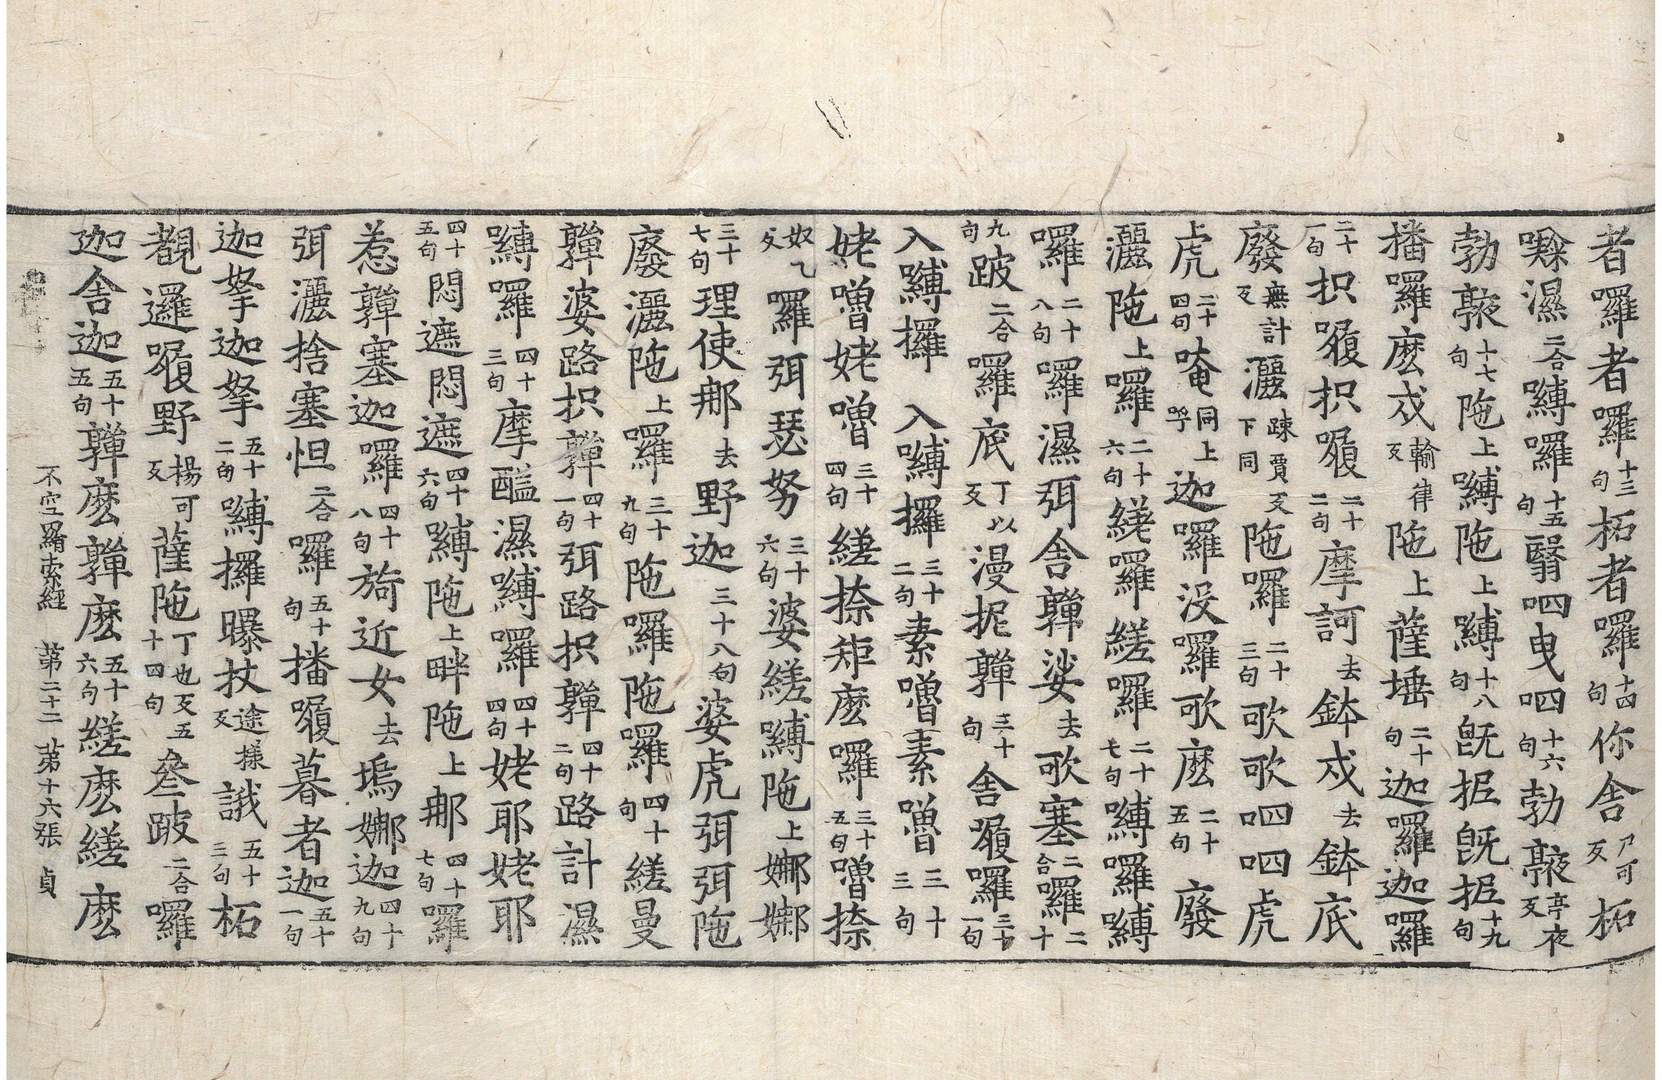 者囉者囉十三句柘者囉十四句你舍尸可反柘
㘑濕二合嚩囉十五句翳呬曳呬十六句勃䕣亭夜反
勃䕣十七句陁上嚩陁上嚩十八句旣抳旣抳十九句
播囉麽戍輸律反陁上薩埵二十句迦囉迦囉
二十一句抧履抧履二十二句摩訶去鉢戍去鉢底
廢無計反灑疎賈反下同陁囉二十三句歌歌呬呬虎
虎二十四句唵同上呼迦囉沒囉歌麽二十五句廢
灑陁上囉二十六句縒囉縒囉二十七句嚩囉嚩
囉二十八句囉濕弭舍亸娑去歌塞二合囉二十
九句跛二合囉底丁以反漫抳亸三十句舍履囉三十一句
入嚩攞入嚩攞三十二句素噜素噜三十三句
姥噜姥噜三十四句縒捺矩麽囉三十五句噜捺
奴乙反囉弭瑟努三十六句婆縒嚩陁上娜娜
三十七句理使那去野迦三十八句婆虎弭弭陁
廢灑陁上囉三十九句陁囉陁囉四十句縒曼
亸婆路抧亸四十一句弭路抧亸四十二句路計濕
嚩囉四十三句摩醯濕嚩囉四十四句姥耶姥耶
四十五句悶遮悶遮四十六句嚩陁上畔陁上那四十七句囉
惹亸塞迦囉四十八句旑近女去塢娜迦四十九句
弭灑捨塞怛二合囉五十句播履暮者迦五十一句
迦拏迦拏五十二句嚩攞曝杖途樣反誐五十三句柘
覩邏履野楊可反薩陁丁也反五十四句叄跛二合囉
迦舍迦五十五句亸麽亸麽五十六句縒麽縒麽
不空羂索經 第二十二 第十六張 貞